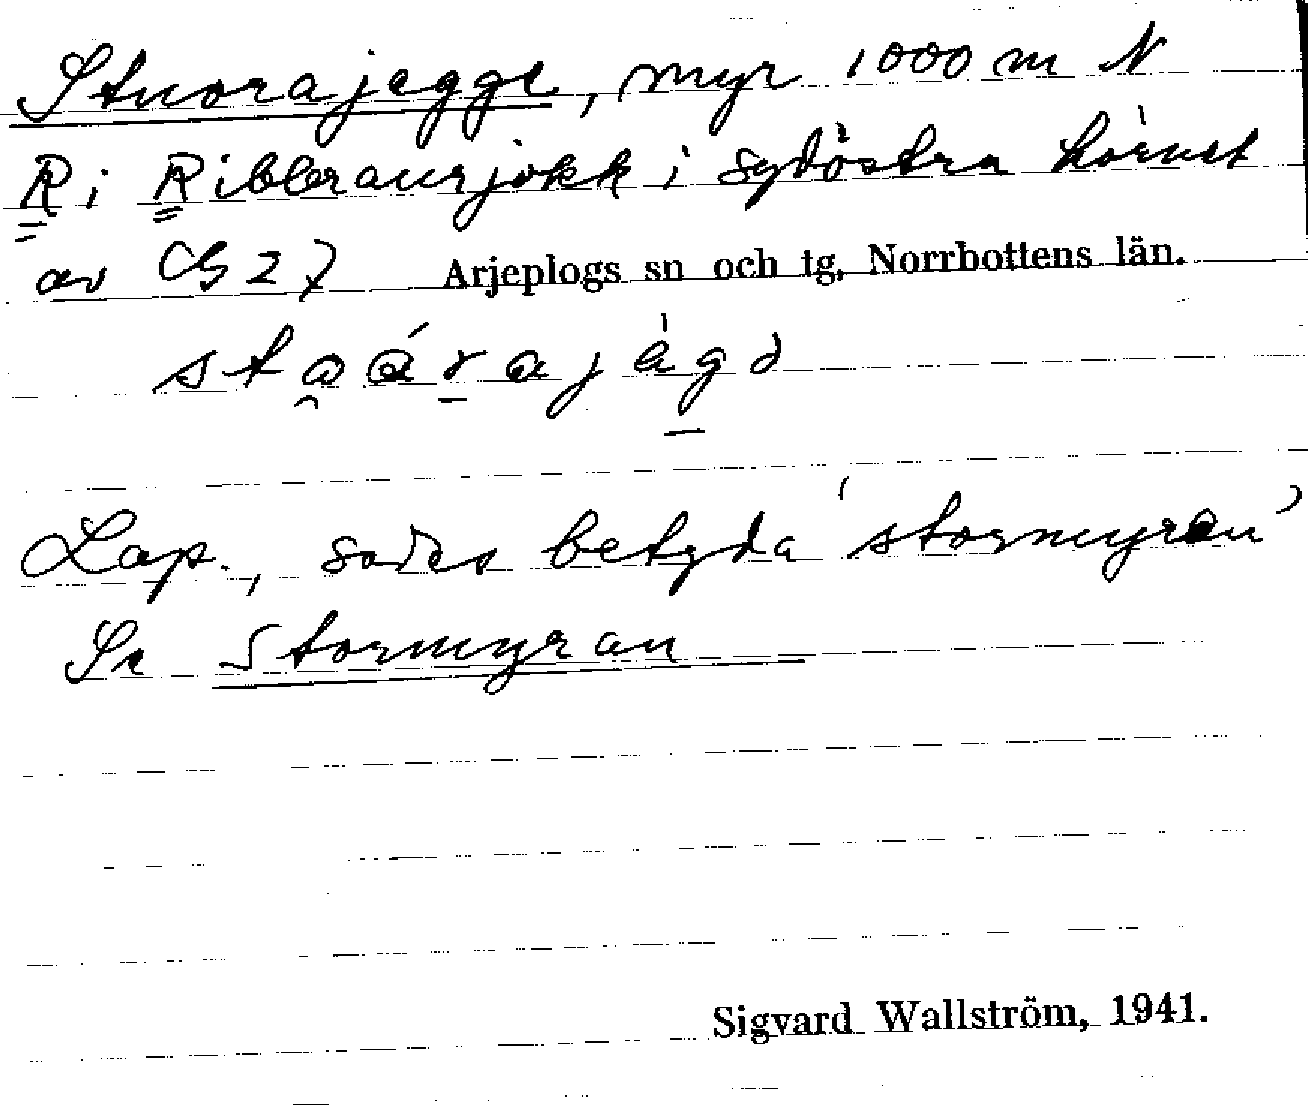 Stuorajegge, myr 1000 m N
R i Ribbraurjokk i sydöstra hörnet
av CG 27 Arjeplogs sn och tg, Norrbottens län.
Lap., sades betyda 'stormyran'
Se Stormyran
Sigvard Wallström, 1941.